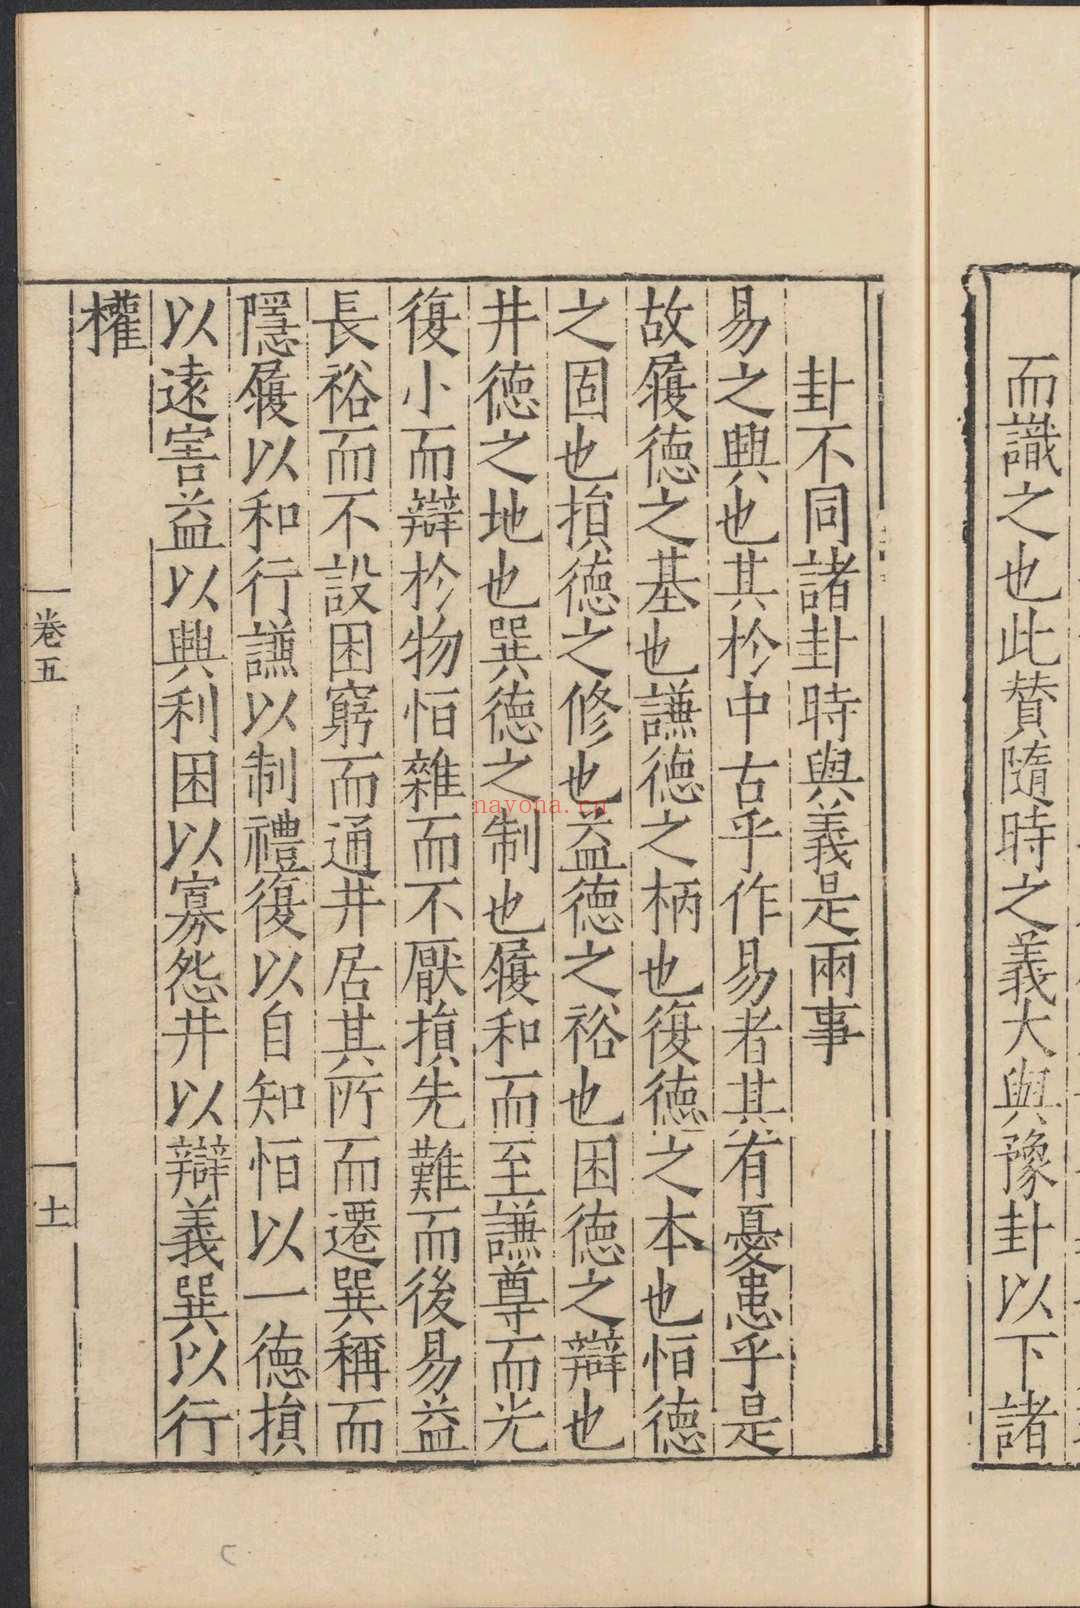 而識之也此贊隨時之義大與豫卦以下諸
卦不同諸卦時與義是兩事
易之興也其於中古乎作易者其有憂患乎是
故履德之基也謙德之柄也復德之本也恒德
之固也損德之修也益德之裕也困德之辯也
井德之地也巽德之制也履和而至謙尊而光
復小而辯於物恒雜而不厭損先難而後易益
長裕而不設困窮而通井居其所而遷巽稱而
隱履以和行謙以制禮復以自知恒以一德損
以遠害益以興利困以寡怨井以辯義巽以行
權
卷五
十一
nayona.cn